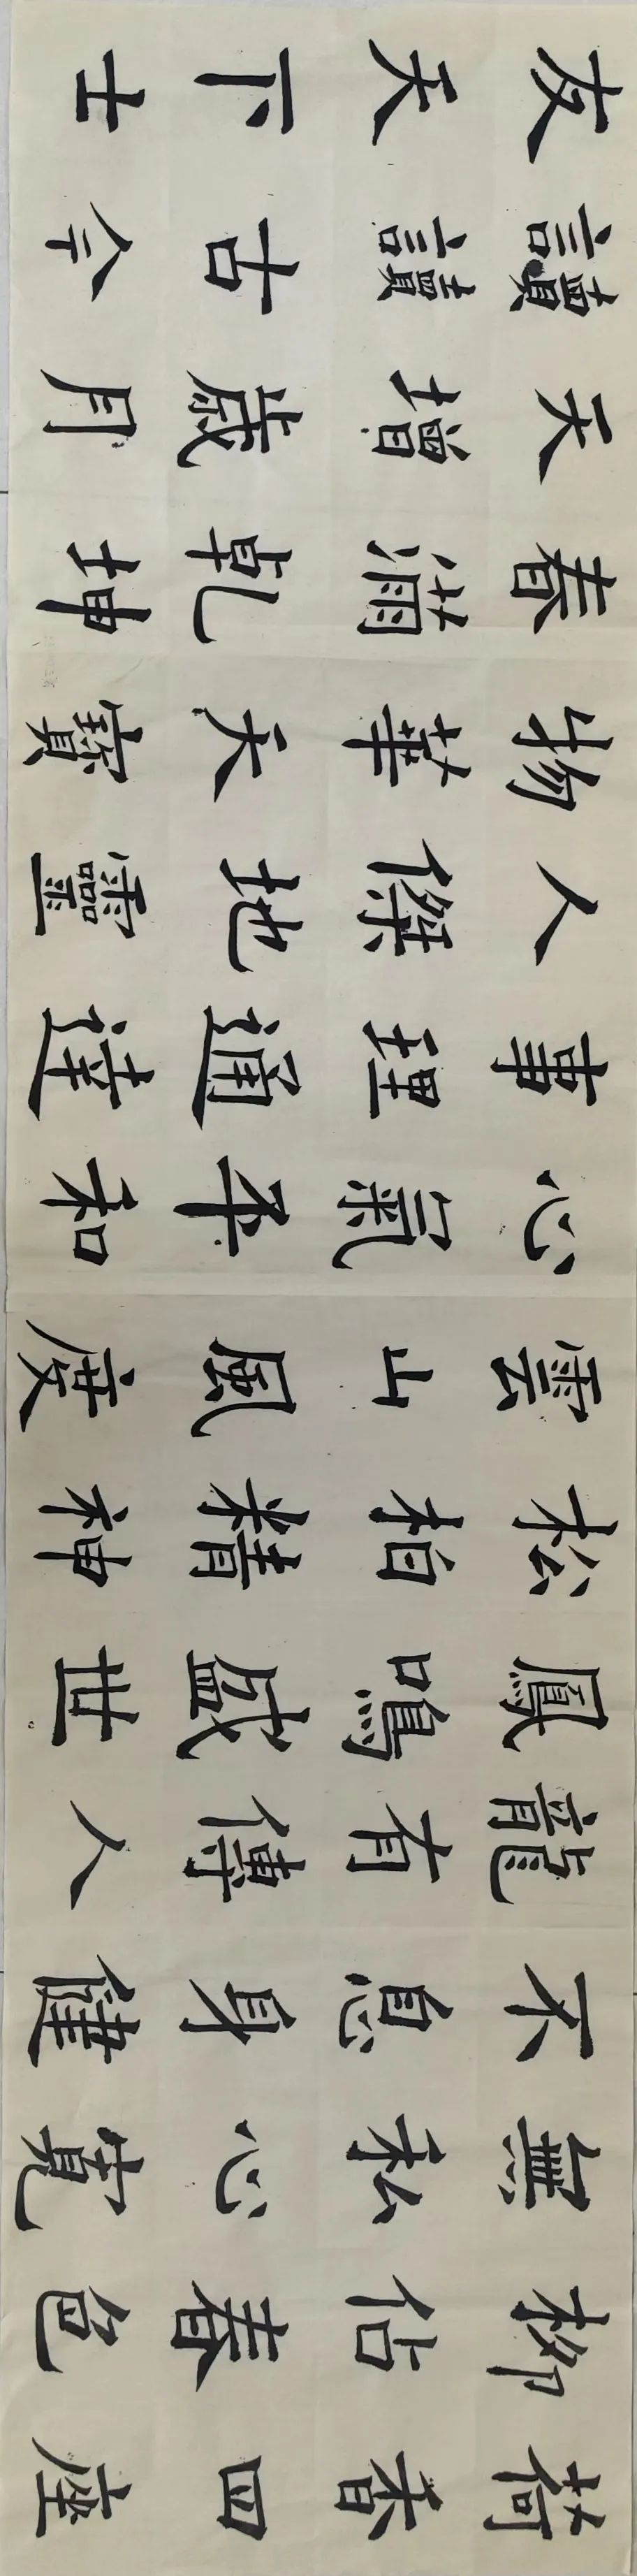 荷香四座
柳佔春色
無私心寬
不息身健
龍有傳人
鳳鳴盛世
松柏精神
雲山風度
心氣平和
事理通達
人傑地靈
物華天寶
春滿乾坤
天增歲月
讀讀古今
友天下士